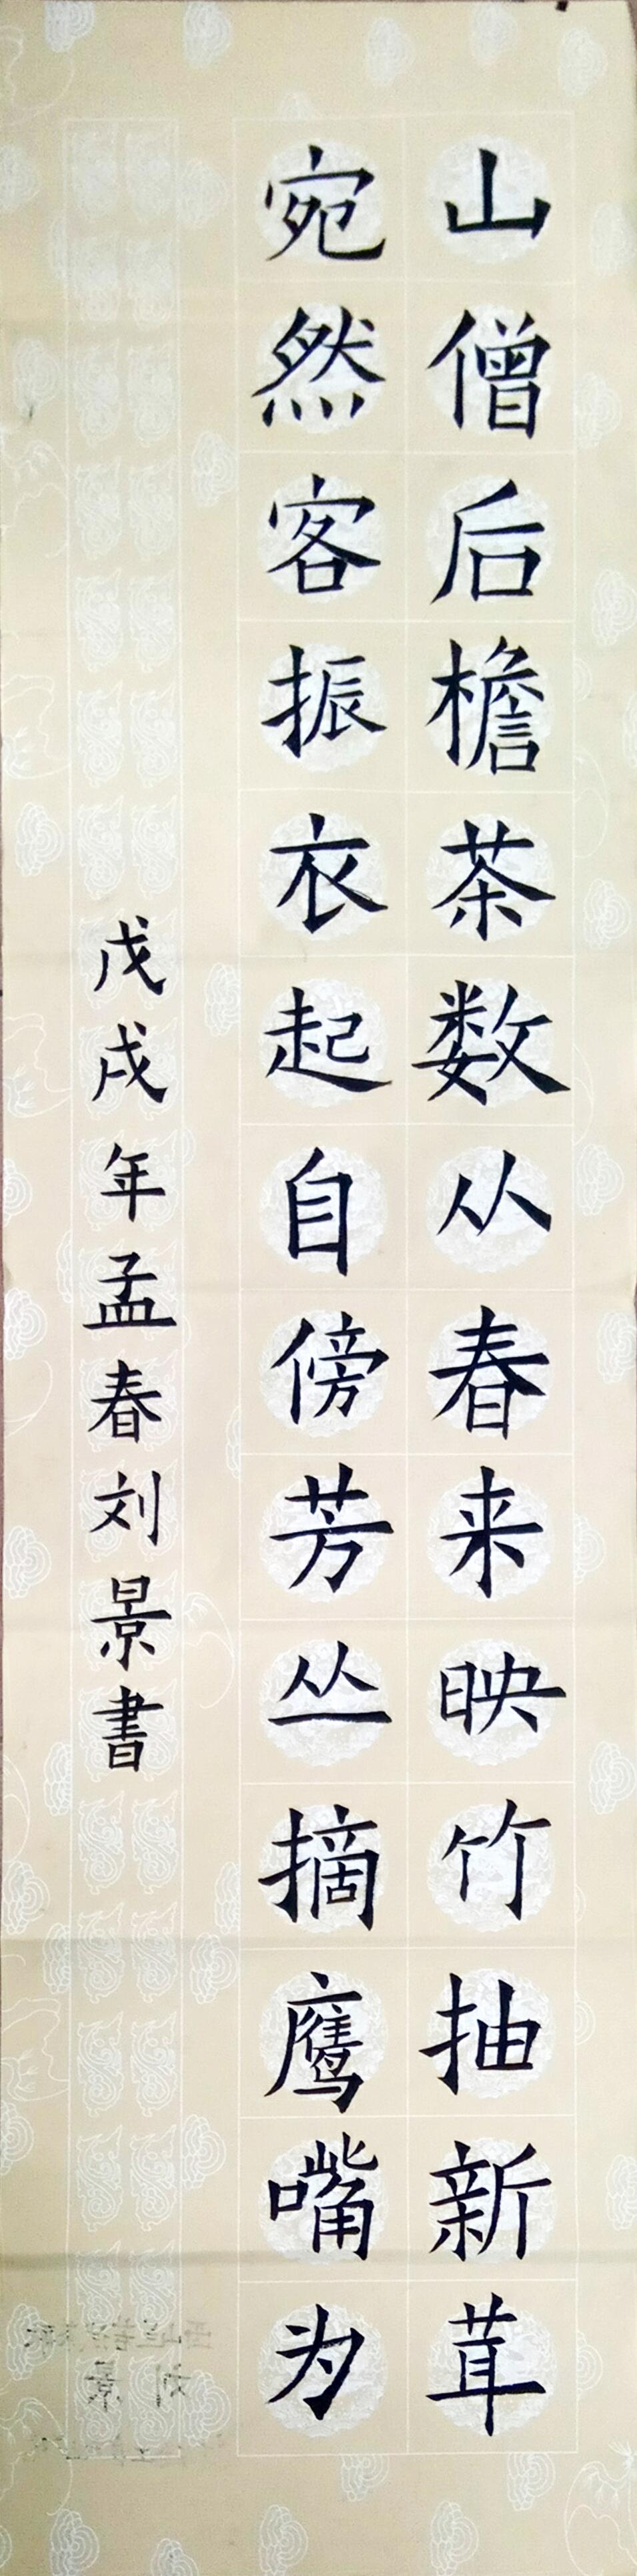 山僧后檐茶数从春来映竹抽新茸
宛然客振衣起自傍芳丛摘鹰嘴为
戊戌年孟春刘景書